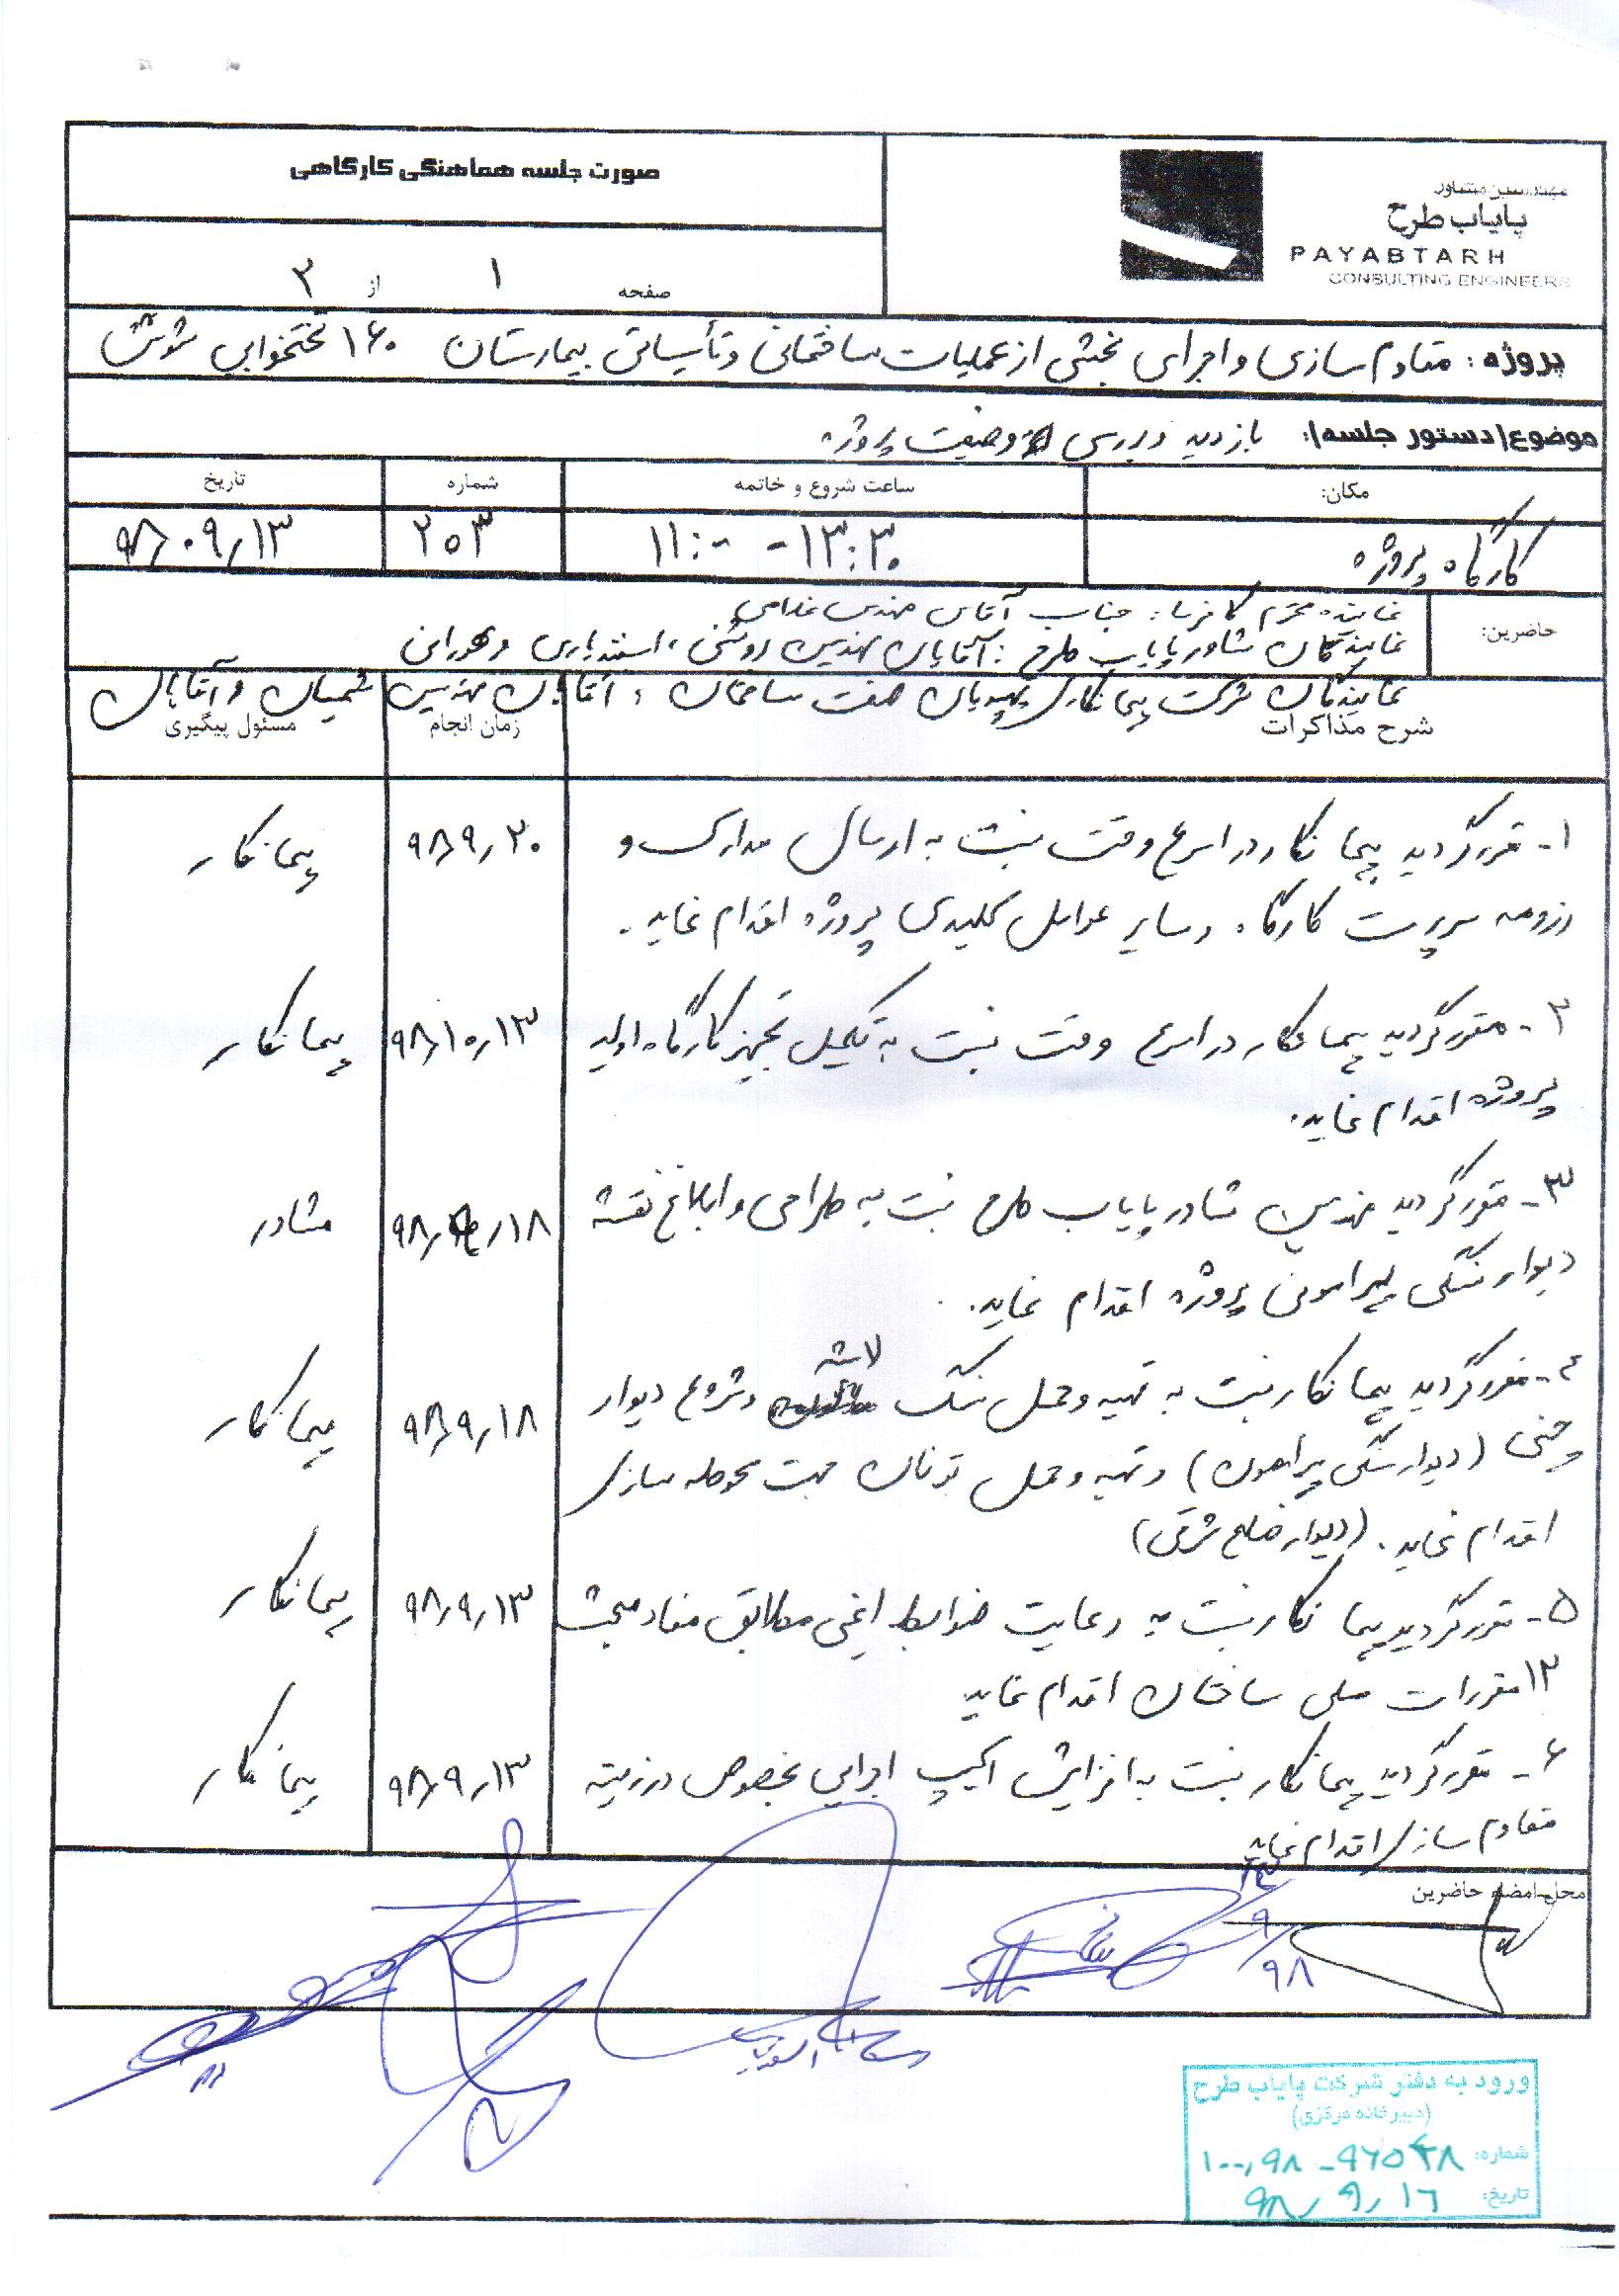 صورت جلسه هماهنگی کارگاهی
مهندسین مشاور
پایاب طرح
PAYABTARH
CONSULTING ENGINEERS
صفحه ۱ از ۲
پروژه: مقاوم سازی و اجرای بخشی از عملیات ساختمانی و تأسیساتی بیمارستان ۱۶۰ تختخوابی شوش
موضوع(دستور جلسه): بازدید و بررسی وضعیت پروژه
مکان: ساعت شروع و خاتمه شماره تاریخ
کارگاه پروژه ۱۱:۰۰ - ۱۳:۳۰ ۲۵۳ ۹۸,۰۹,۱۳
حاضرین: نماینده محترم کارفرما: جناب آقای مهندس غلامی
نمایندگان مشاور پایاب طرح: آقایان مهندس روشنی، اسفندیاری و
نمایندگان شرکت پیمانکاری صنعت ساختمان: آقایان مهندس و آقایان
شرح مذاکرات زمان انجام مسئول پیگیری
۱- مقرر گردید پیمانکار در اسرع وقت نسبت به ارسال مدارک و ۹۸,۹,۲۰ پیمانکار
رزومه سرپرست کارگاه و سایر عوامل کلیدی پروژه اقدام نماید.
۲- مقرر گردید پیمانکار در اسرع وقت نسبت به تکمیل تجهیز کارگاه اولیه ۹۸,۱۰,۱۳ پیمانکار
پروژه اقدام نماید.
۳- مقرر گردید مهندسین مشاور پایاب طرح نسبت به طراحی و ابلاغ نقشه ۹۸,۹,۱۸ مشاور
دیوار سنگی پیرامونی پروژه اقدام نماید.
۴- مقرر گردید پیمانکار نسبت به تهیه و حمل سنگ لاشه و شروع دیوار ۹۸,۹,۱۸ پیمانکار
چینی (دیوار سنگی پیرامون) و تهیه و حمل تونان جهت محوطه سازی
اقدام نماید. (دیوار ضلع شرقی)
۵- مقرر گردید پیمانکار نسبت به رعایت ضوابط ایمنی مطابق مفاد مبحث ۹۸,۹,۱۳ پیمانکار
۱۲ مقررات ملی ساختمان اقدام نماید
۶- مقرر گردید پیمانکار نسبت به افزایش اکیپ اجرایی بخصوص در زمینه ۹۸,۹,۱۳ پیمانکار
مقاوم سازی اقدام نماید
محل امضاء حاضرین
ورود به دفتر شرکت پایاب طرح
(دبیرخانه مرکزی)
شماره: ۱۰۰,۹۸-۹۶۵۴۸
تاریخ: ۹۸,۹,۱۶